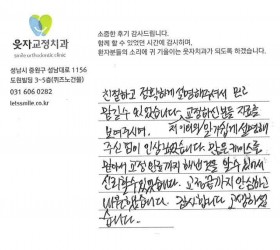 웃자교정치과
smile orthodontic clinic
성남시 중원구 성남대로 1156
도원빌딩 3~5층(퀴즈노건물)
031 606 0282
letssmile.co.kr
소중한 후기 감사드립니다.
함께 할 수 있었던 시간에 감사하며,
환자분들의 소리에 귀 기울이는 웃자치과가 되도록 하겠습니다.
친절하고 정확하게 설명해주셔서 믿고
맡길수 있었습니다. 교정하신분들 진료를
보여주시며, 저 이해할 알기쉽게 설명해
주신 점이 인상깊었습니다. 많은 케이스를
맡아서 교정 인증까지 해낸것을 알 수 있어서
신뢰할수 있었습니다. 교정끝까지 안심하고
내원했습니다. 감사합니다 고생하셨
습니다.